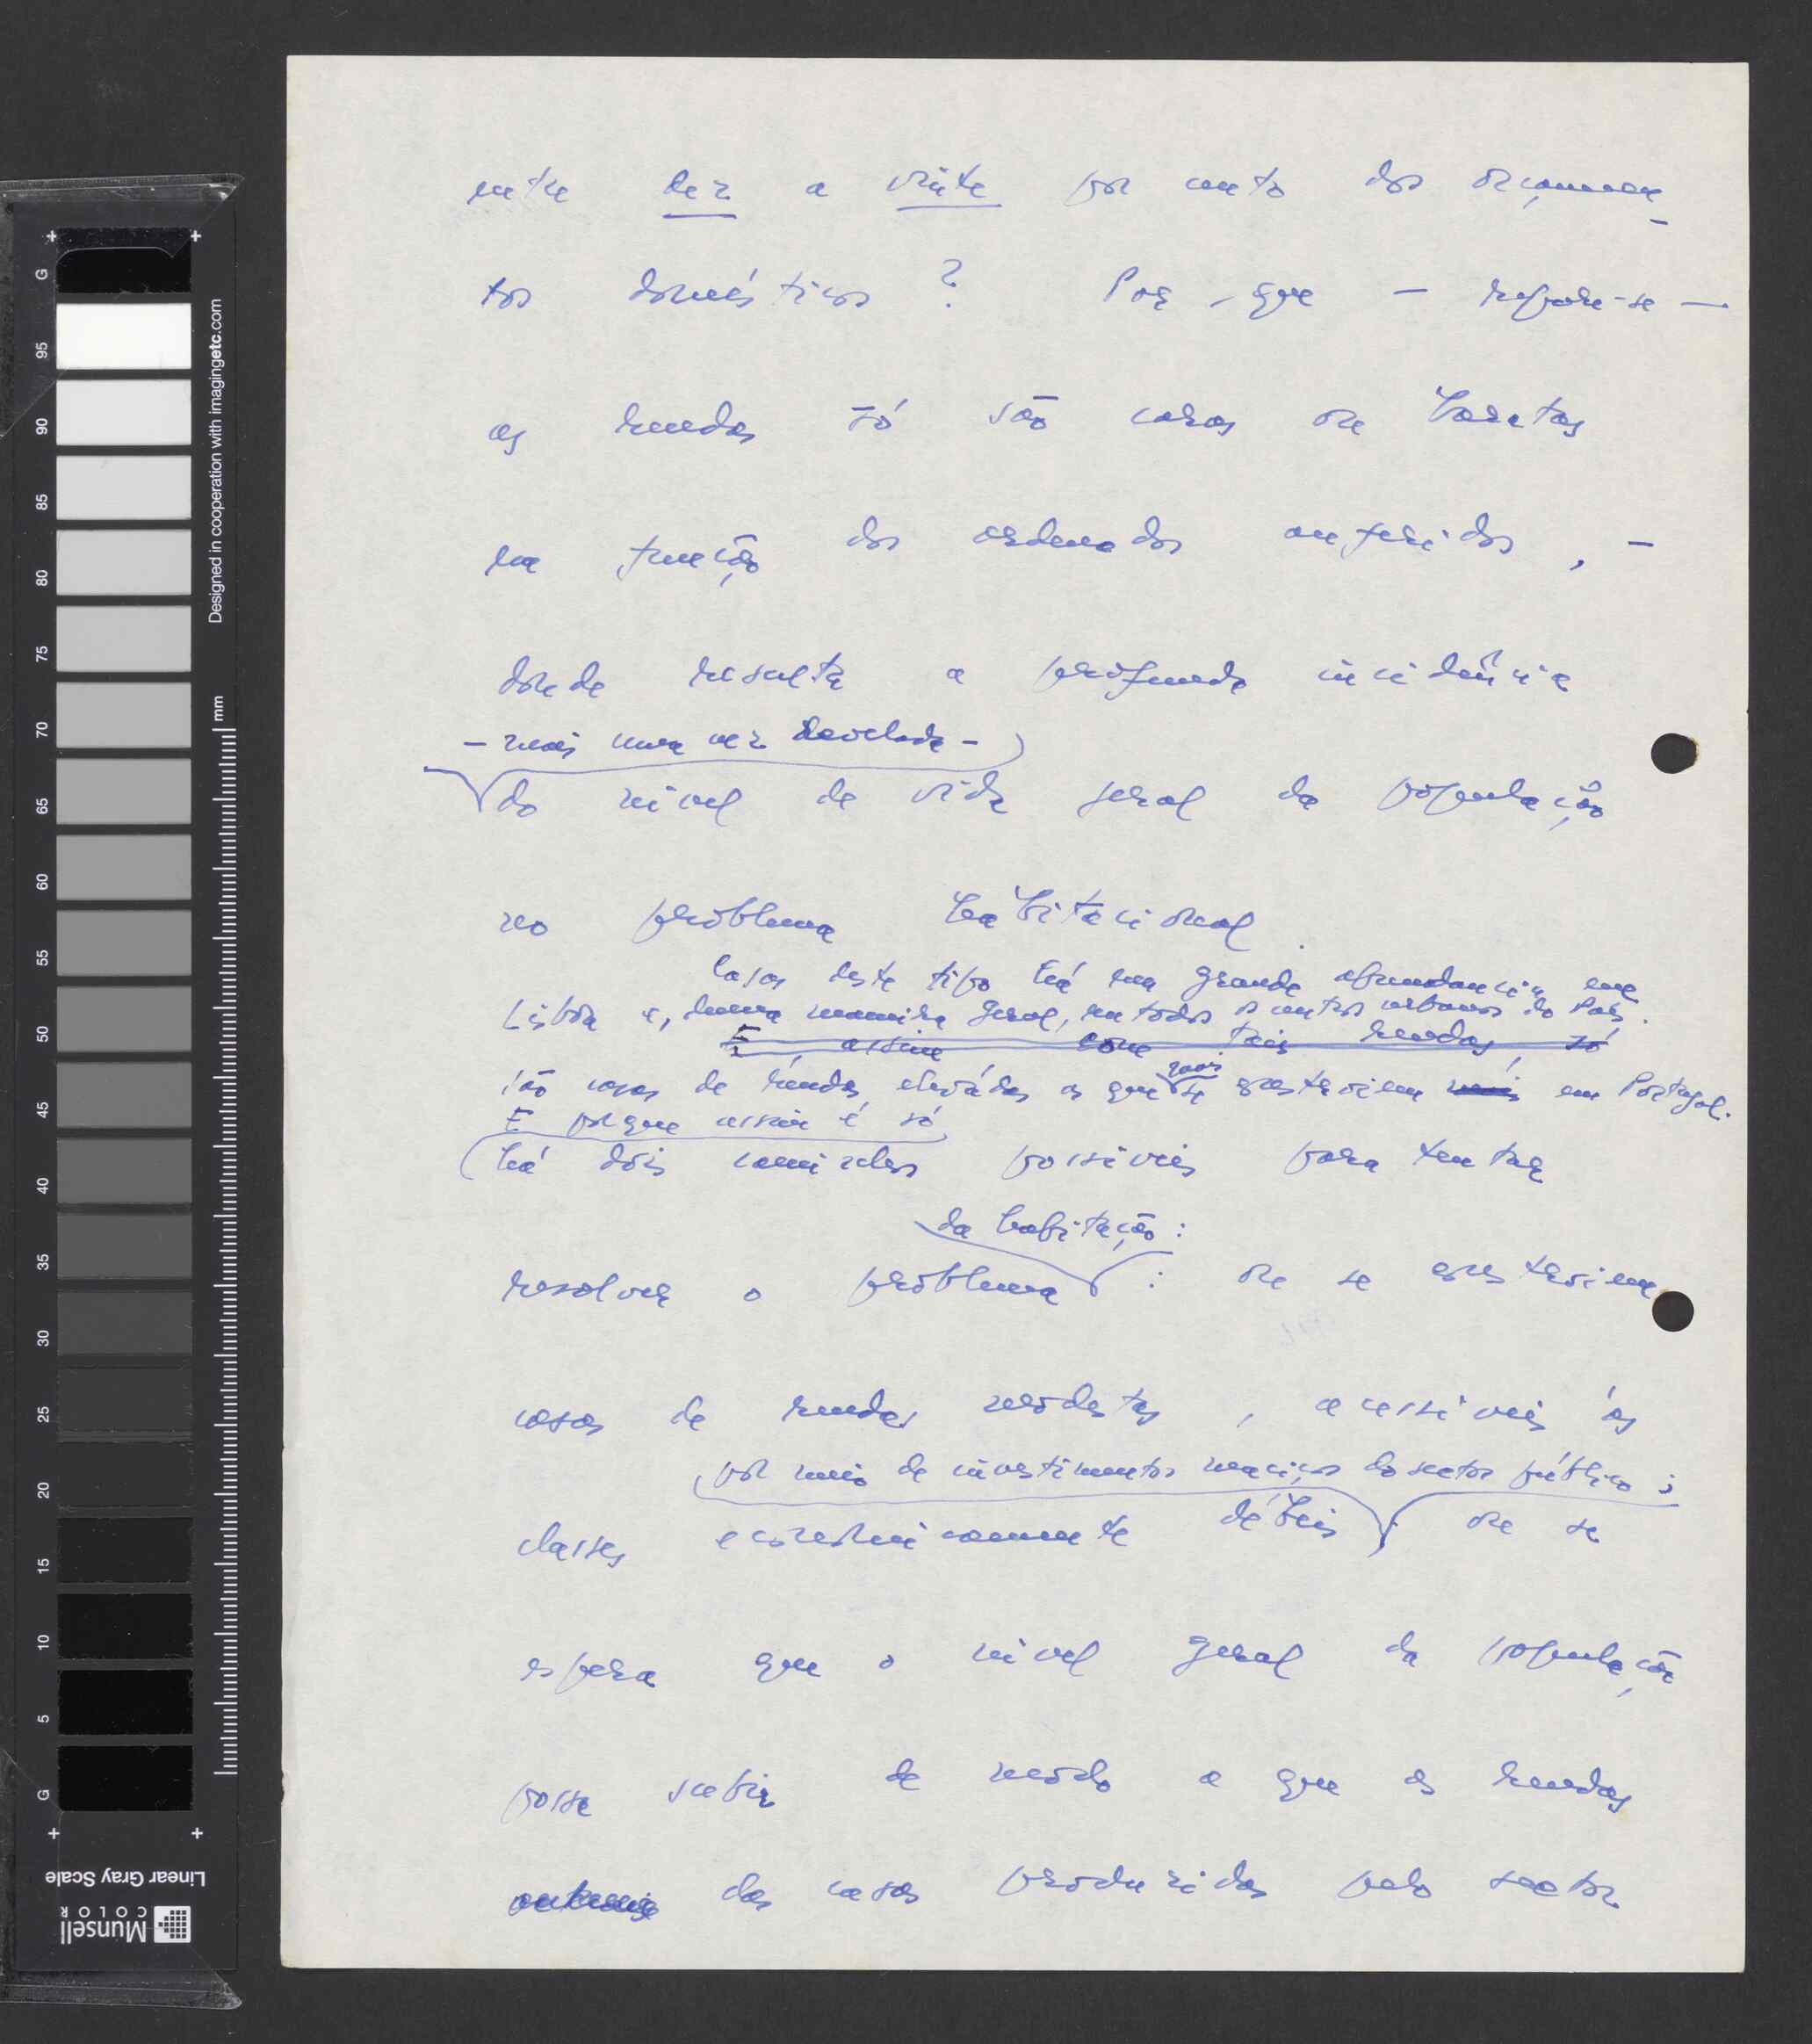 entre dez a vinte por cento dos orçamen-
tos domésticos? Porque — repare-se —
as rendas só são caras ou baratas
em função dos ordenados auferidos, -
donde resulta a profunda incidência
- mais uma vez revelada -
do nível de vida geral da população
no problema habitacional.
Casas deste tipo há em grande abundância em
Lisboa e, duma maneira geral, em todos os centros urbanos do País.
É assim com tais rendas, só
são casas de rendas elevadas as que mais se constroiem em Portugal.
E porque assim é só
há dois caminhos possíveis para tentar
da habitação:
resolver o problema : ou se constroiem
casas de rendas modestas, acessíveis às
por meio de investimentos maciços do sector público;
classes economicamente débeis ; ou se
espera que o nível geral da população
possa subir de modo a que as rendas
das casas produzidas pelo sector
Designed in cooperation with imagingetc.com
mm
G 95 90 85 80 75 70 65 60 55 50 45 40 35 30 25 20 15 10 5 G
Linear Gray Scale
Munsell
COLOR